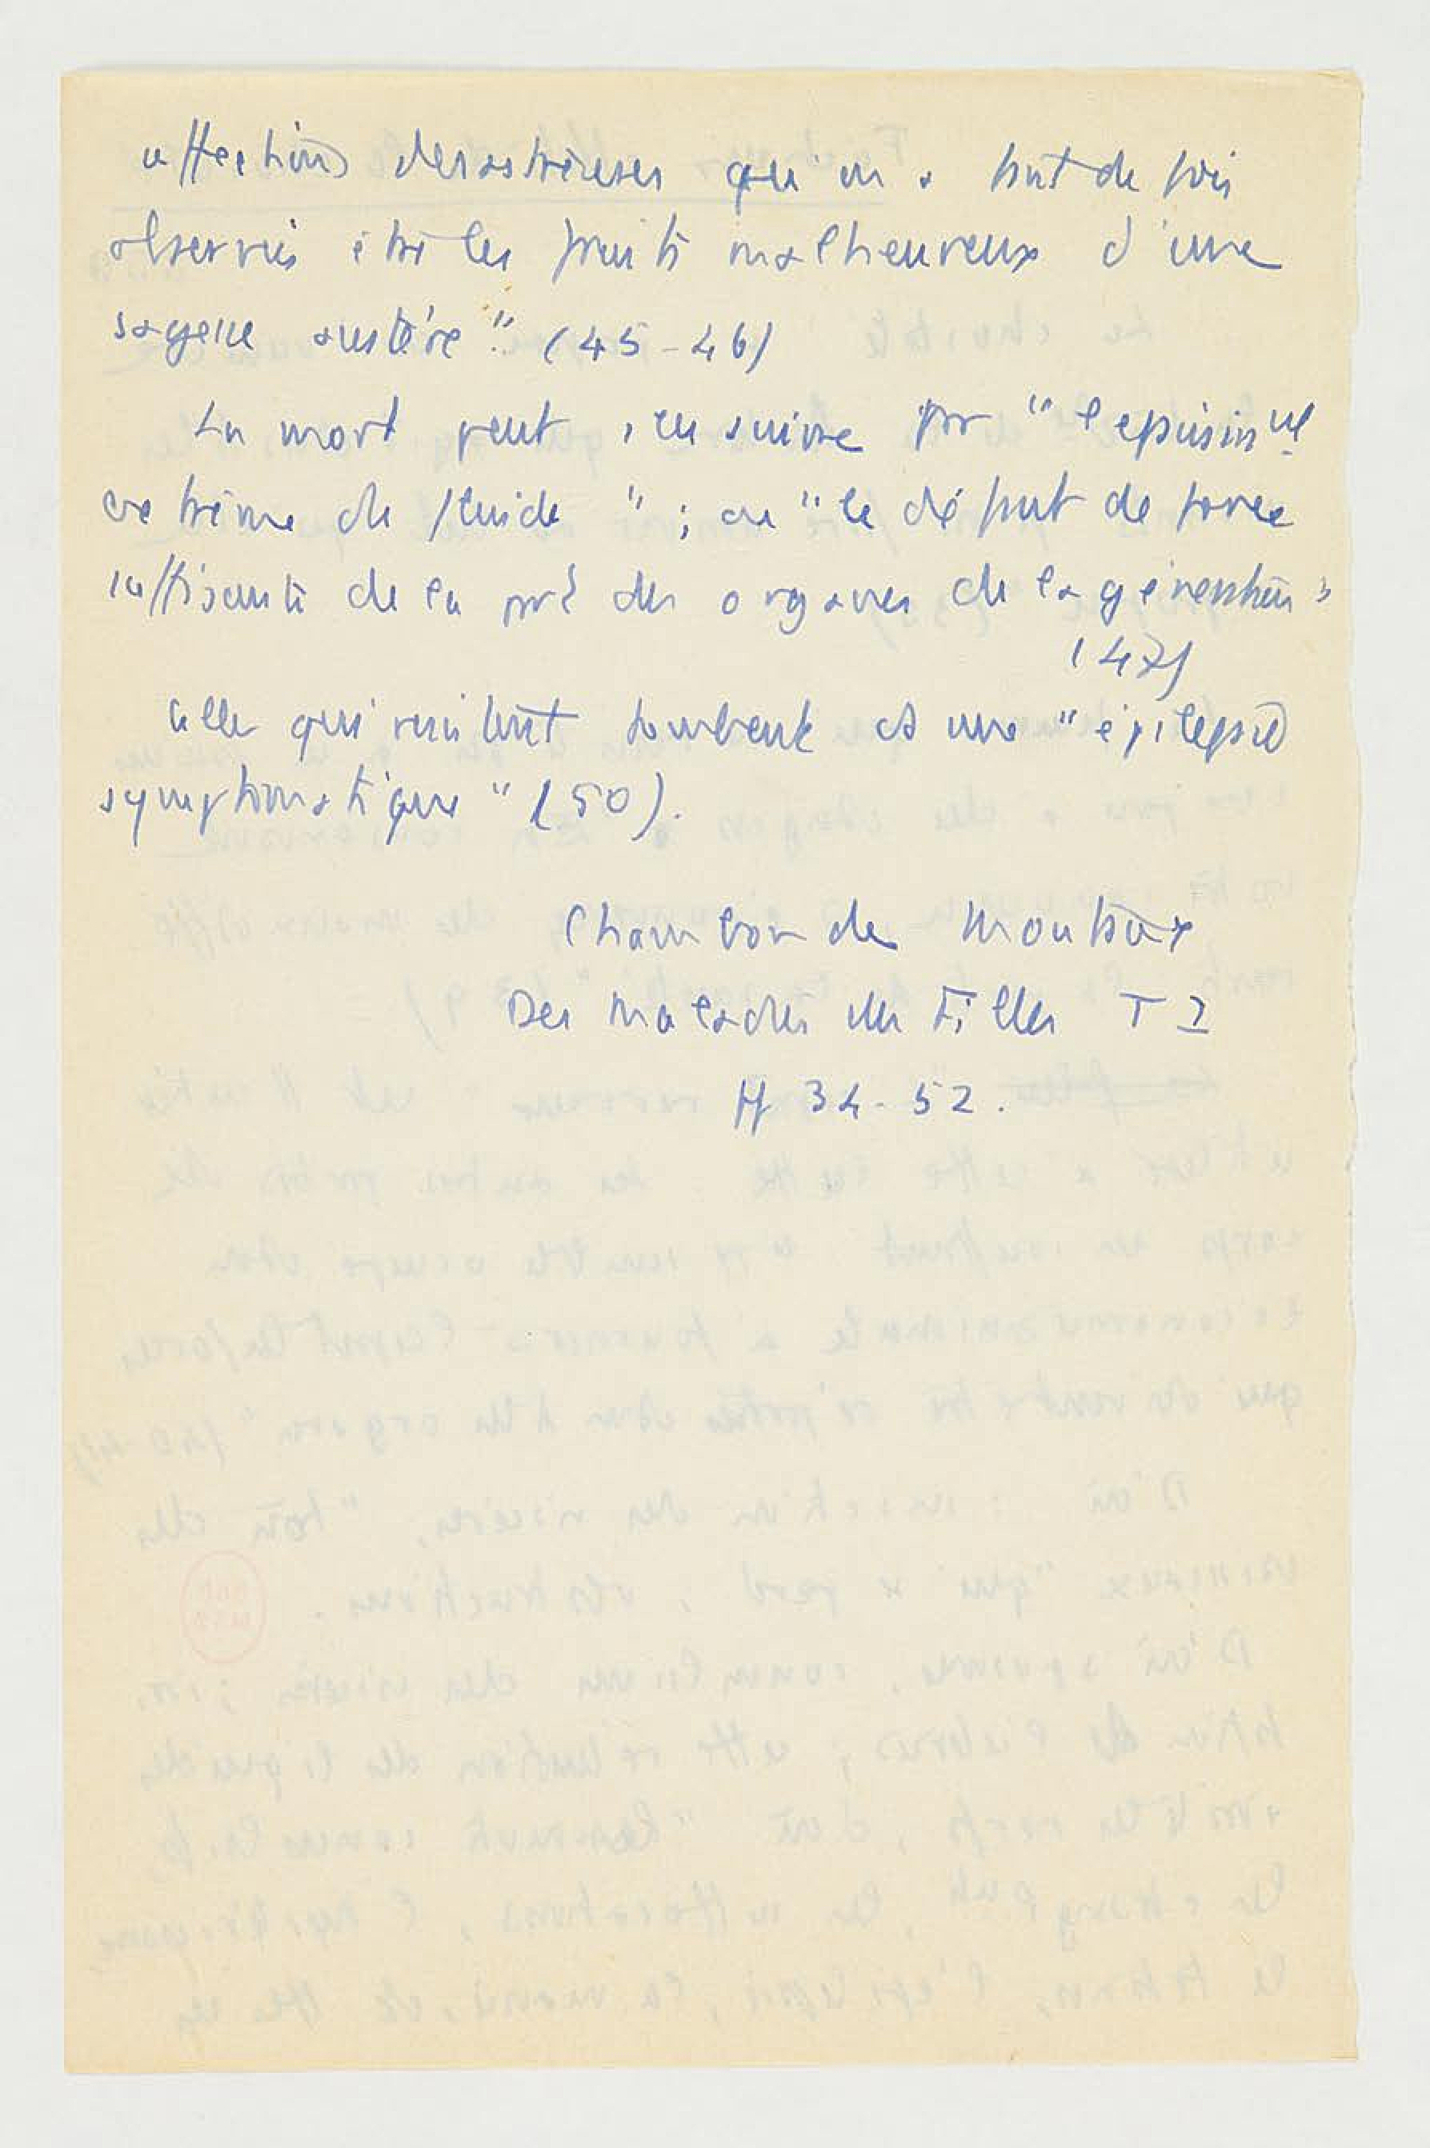 affections désastreuses qu'on a tant de fois
observées être les fruits malheureux d'une
sagesse austère". (45-46)
La mort peut s'en suivre par "l'épuismt
extrême du fluide" ; ou "le défaut de force
suffisante de la part des organes de la génération"
(47)
celles qui résistent tombent ds une "épilepsie
symptomatique" (50).
Chambon de Montaux
Des maladies des Filles T I
pp 34-52.